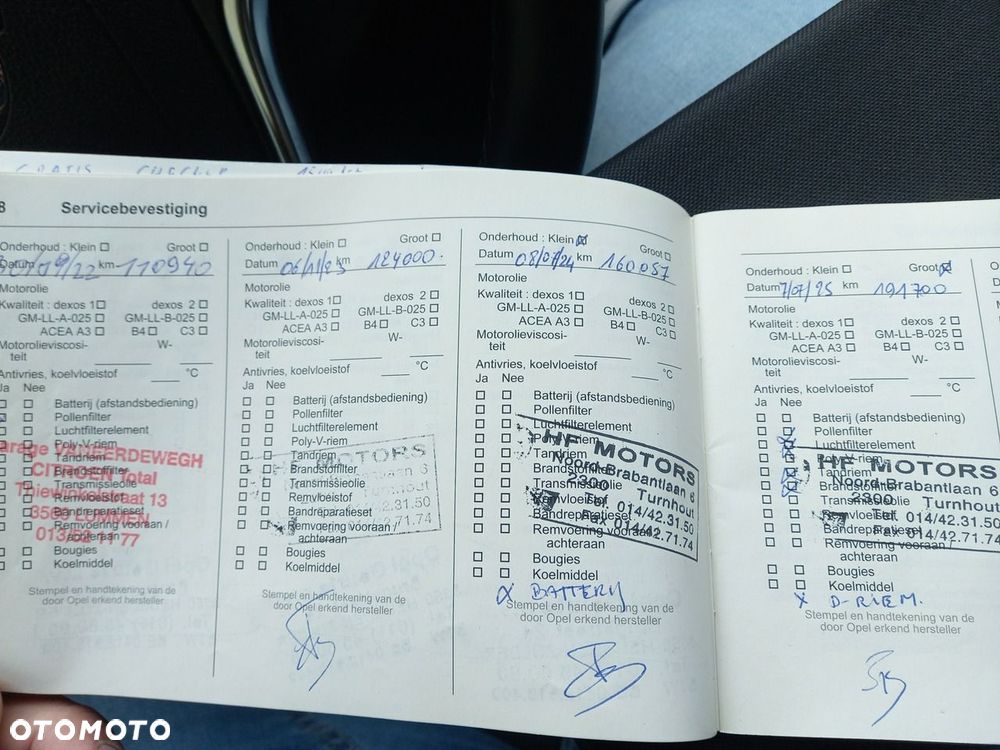 GRATIS CHECKUP
8 Servicebevestiging
Onderhoud : Klein Groot
Datum 20/09/22 km 110940
Motorolie
Kwaliteit : dexos 1 dexos 2
GM-LL-A-025 GM-LL-B-025
ACEA A3 B4 C3
Motorolieviscosi- W-
teit
Antivries, koelvloeistof °C
Ja Nee
Batterij (afstandsbediening)
Pollenfilter
Luchtfilterelement
Poly-V-riem
Tandriem
Brandstoffilter
Transmissieolie
Remvloeistof
Bandreparatieset
Remvoering vooraan /
achteraan
Bougies
Koelmiddel
Garage VANDERDEWEGH
CITROEN Total
Thiewinkelstraat 13
3560 LUMMEN
Stempel en handtekening van de
door Opel erkend hersteller
Onderhoud : Klein Groot
Datum 06/11/23 km 124000.
Motorolie
Kwaliteit : dexos 1 dexos 2
GM-LL-A-025 GM-LL-B-025
ACEA A3 B4 C3
Motorolieviscosi- W-
teit
Antivries, koelvloeistof °C
Ja Nee
Batterij (afstandsbediening)
Pollenfilter
Luchtfilterelement
Poly-V-riem
Tandriem
Brandstoffilter
Transmissieolie
Remvloeistof
Bandreparatieset
Remvoering vooraan /
achteraan
Bougies
Koelmiddel
HF MOTORS
Stempel en handtekening van de
door Opel erkend hersteller
Onderhoud : Klein Groot
Datum 08/07/24 km 160057
Motorolie
Kwaliteit : dexos 1 dexos 2
GM-LL-A-025 GM-LL-B-025
ACEA A3 B4 C3
Motorolieviscosi- W-
teit
Antivries, koelvloeistof °C
Ja Nee
Batterij (afstandsbediening)
Pollenfilter
Luchtfilterelement
Poly-V-riem
Tandriem
Brandstoffilter
Transmissieolie
Remvloeistof
Bandreparatieset
Remvoering vooraan /
achteraan
Bougies
Koelmiddel
HF MOTORS
Noord-Brabantlaan 6
2300 Turnhout
Tel. 014/42.31.50
Fax 014/42.71.74
X BATTERY
Stempel en handtekening van de
door Opel erkend hersteller
Onderhoud : Klein Groot
Datum 7/07/25 km 191700
Motorolie
Kwaliteit : dexos 1 dexos 2
GM-LL-A-025 GM-LL-B-025
ACEA A3 B4 C3
Motorolieviscosi- W-
teit
Antivries, koelvloeistof °C
Ja Nee
Batterij (afstandsbediening)
Pollenfilter
Luchtfilterelement
Poly-V-riem
Tandriem
Brandstoffilter
Transmissieolie
Remvloeistof
Bandreparatieset
Remvoering vooraan /
achteraan
Bougies
Koelmiddel
HF MOTORS
Noord-Brabantlaan 6
2300 Turnhout
Tel. 014/42.31.50
Fax 014/42.71.74
X D-RIEM.
Stempel en handtekening van de
door Opel erkend hersteller
OTOMOTO